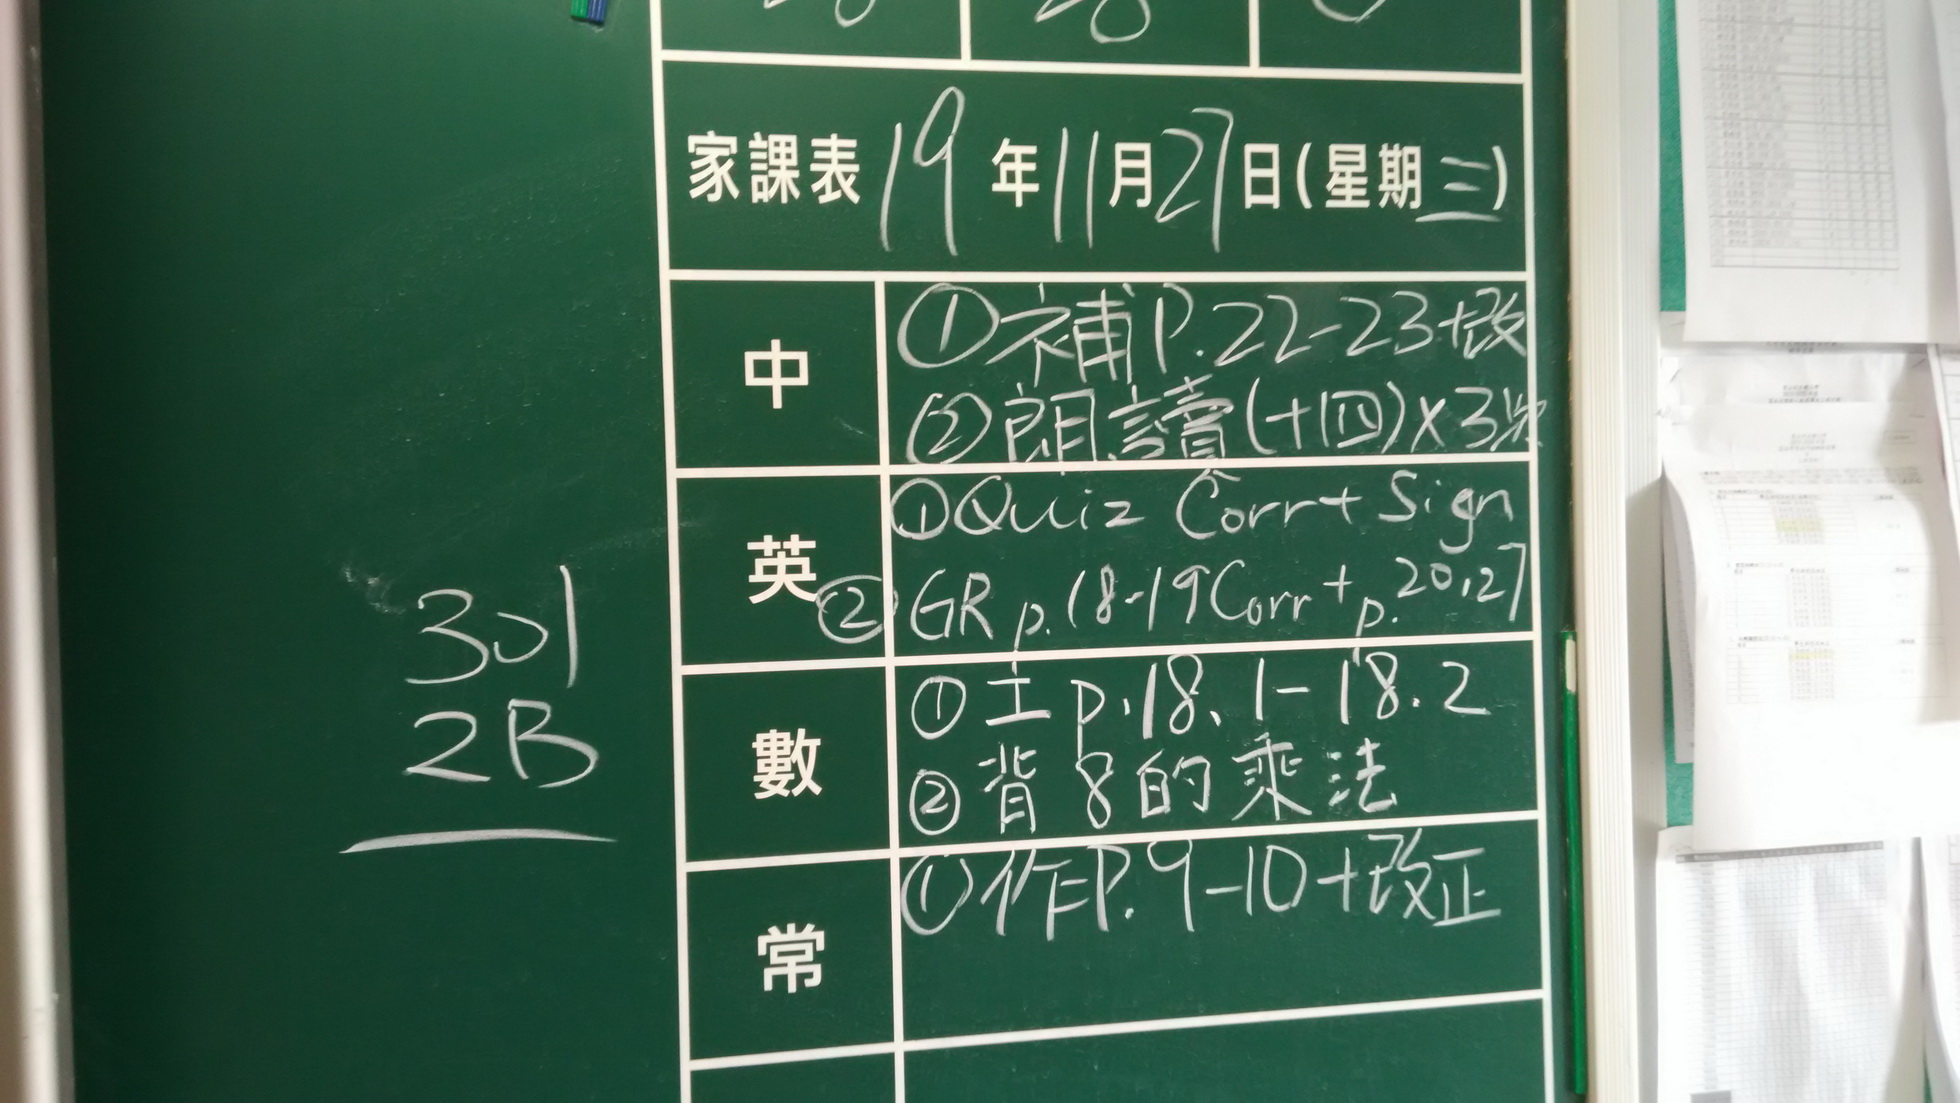 家課表 19 年 11 月 27 日(星期三)
中
①補P.22-23+改
②朗讀(十四)×3次
英
①Quiz Corr+ Sign
②GR p.18-19 Corr + p.20,27
數
①工 p.18.1-18.2
②背8的乘法
常
①作P.9-10+改正
301
2B